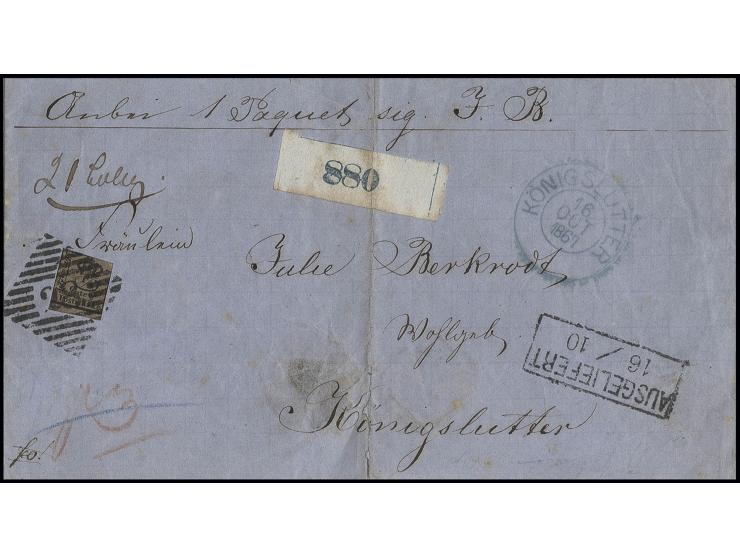 Anbei 1 Paquet sig. J. B.
880
KÖNIGSLUTTER
16
OCT
1867
Fräulein
Julie Berkrodt
Wohlgeb.
AUSGELIEFERT
16 / 10
Königslutter
fco.